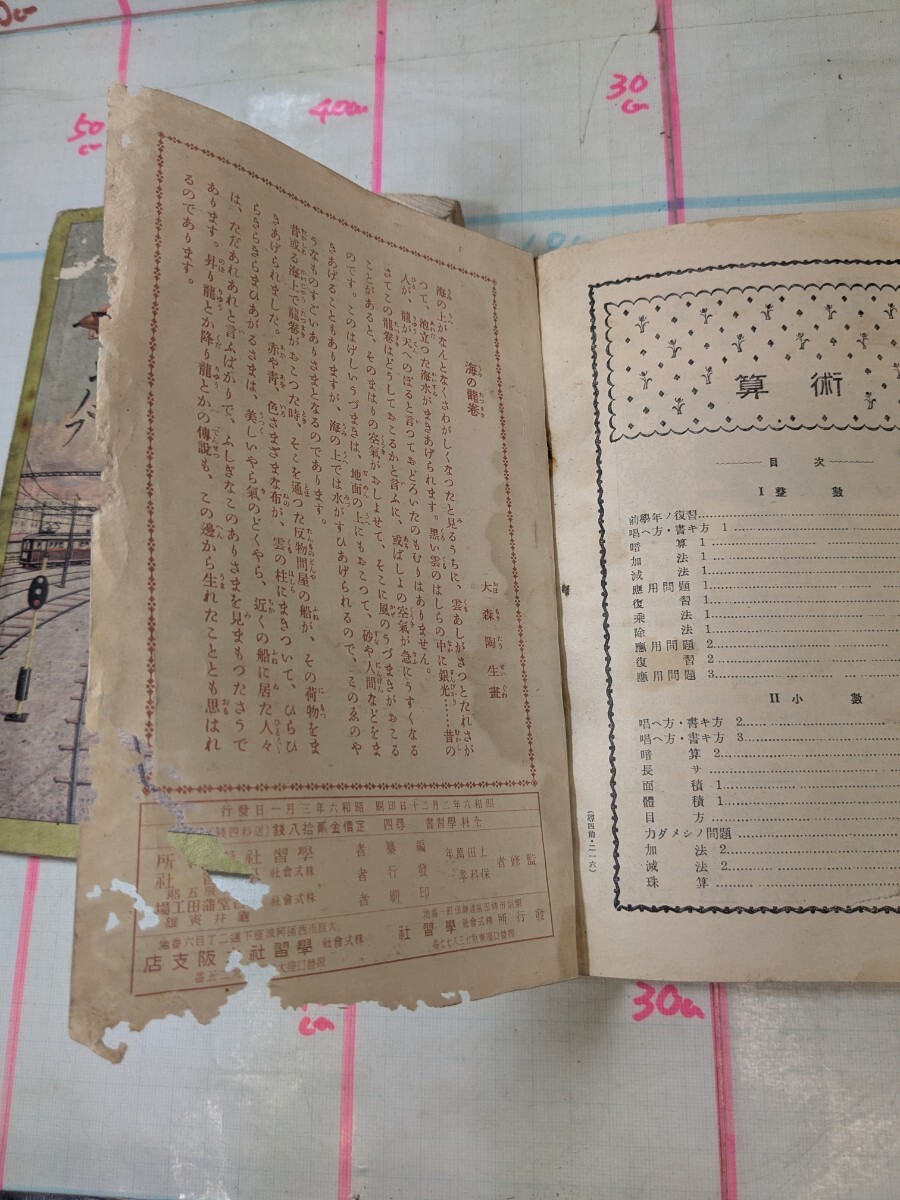 海の龍卷
大森陶生畫
海の上がなんとなくさわがしくなつたと見るうちに、雲あしがさつとたれさが
つて、池立つた海水がまきあげられます。黒い雲のはしらの中に銀光……昔の
人が、龍が天へのぼると言つておどろいたのもむりはありません。
さてこの龍卷はどうしておこるかと言ふに、或ばしよの空氣が急にうすくなる
ことがあると、そのまはりの空氣がおしよせて、そこに風のうづまきがおこる
のです。このはげしいうづまきは、地面の上にもおこつて、砂や人間などをま
きあげることもありますが、海の上では水がすひあげられるので、このゑのや
うなものすごいありさまとなるのであります。
昔或る海上で龍卷がおこつた時、そこを通つた反物問屋の船が、その荷物をま
きあげられました。赤や青、色さまざまな布が、雲の柱にまきついて、ひらひ
らきらきらまひあがるさまは、美しいやら氣のどくやら、近くの船に居た人々
は、ただあれあれと言ふばかりで、ふしぎなこのありさまを見まもつたさうで
あります。昇り龍とか降り龍とかの傳説も、この邊から生れたこととも思はれ
るのであります。
昭和六年二月二十日印刷 昭和六年三月一日發行
全科學習書 尋四 定價金貳拾八錢
監修者
上田萬年
保科孝一
編纂者 學習社
發行者 株式會社
印刷者 株式會社
發行所 株式會社 學習社
株式會社 學習社 大阪支店
算術
目次
I 整數
前學年ノ復習
唱ヘ方・書キ方 1
暗算 1
加法 1
減法 1
應用問題 1
復習 1
乘法 1
除法 1
應用問題 2
復習 2
應用問題 3
II 小數
唱ヘ方・書キ方 2
唱ヘ方・書キ方 3
暗算 2
長サ
面積 1
體積 1
目方
力ダメシノ問題
加法 2
減法 2
珠算
50c
40cm
30cm
30cm